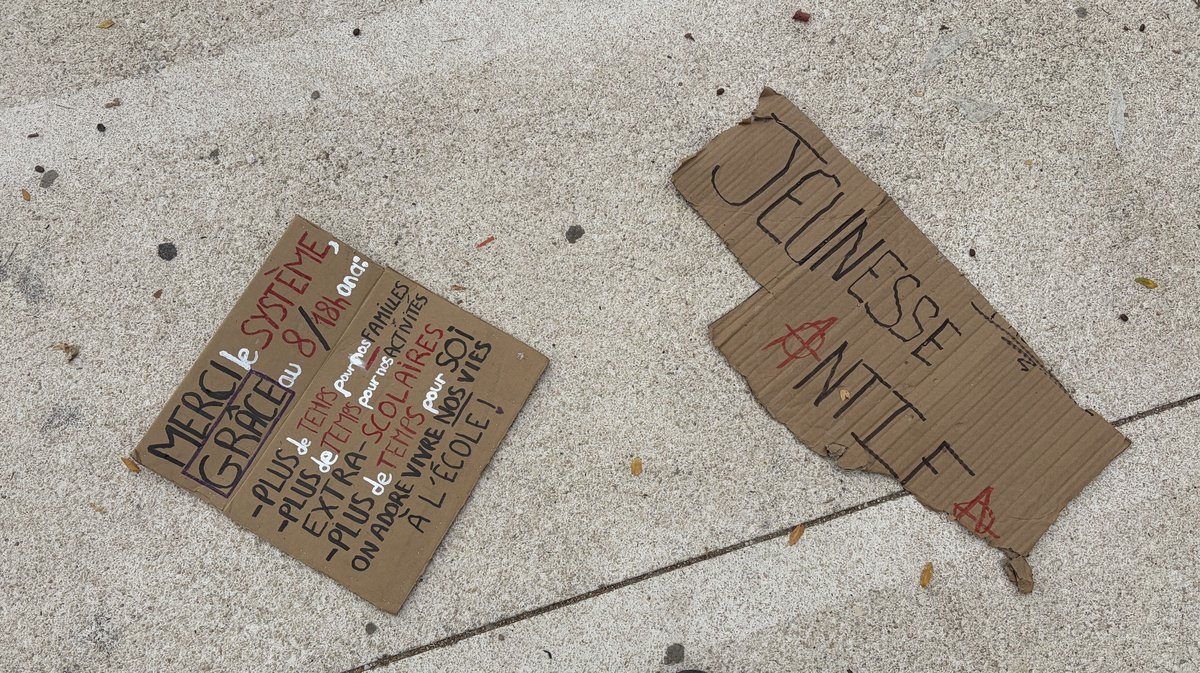 MERCI le SYSTÈME,
GRÂCE au 8/18h on a:
-PLUS de TEMPS pour nos FAMILLES
-PLUS de TEMPS pour nos ACTIVITÉS
EXTRA-SCOLAIRES
-PLUS de TEMPS pour SOI
ON ADORE VIVRE NOS VIES
À L'ÉCOLE!
JEUNESSE
ANTIFA